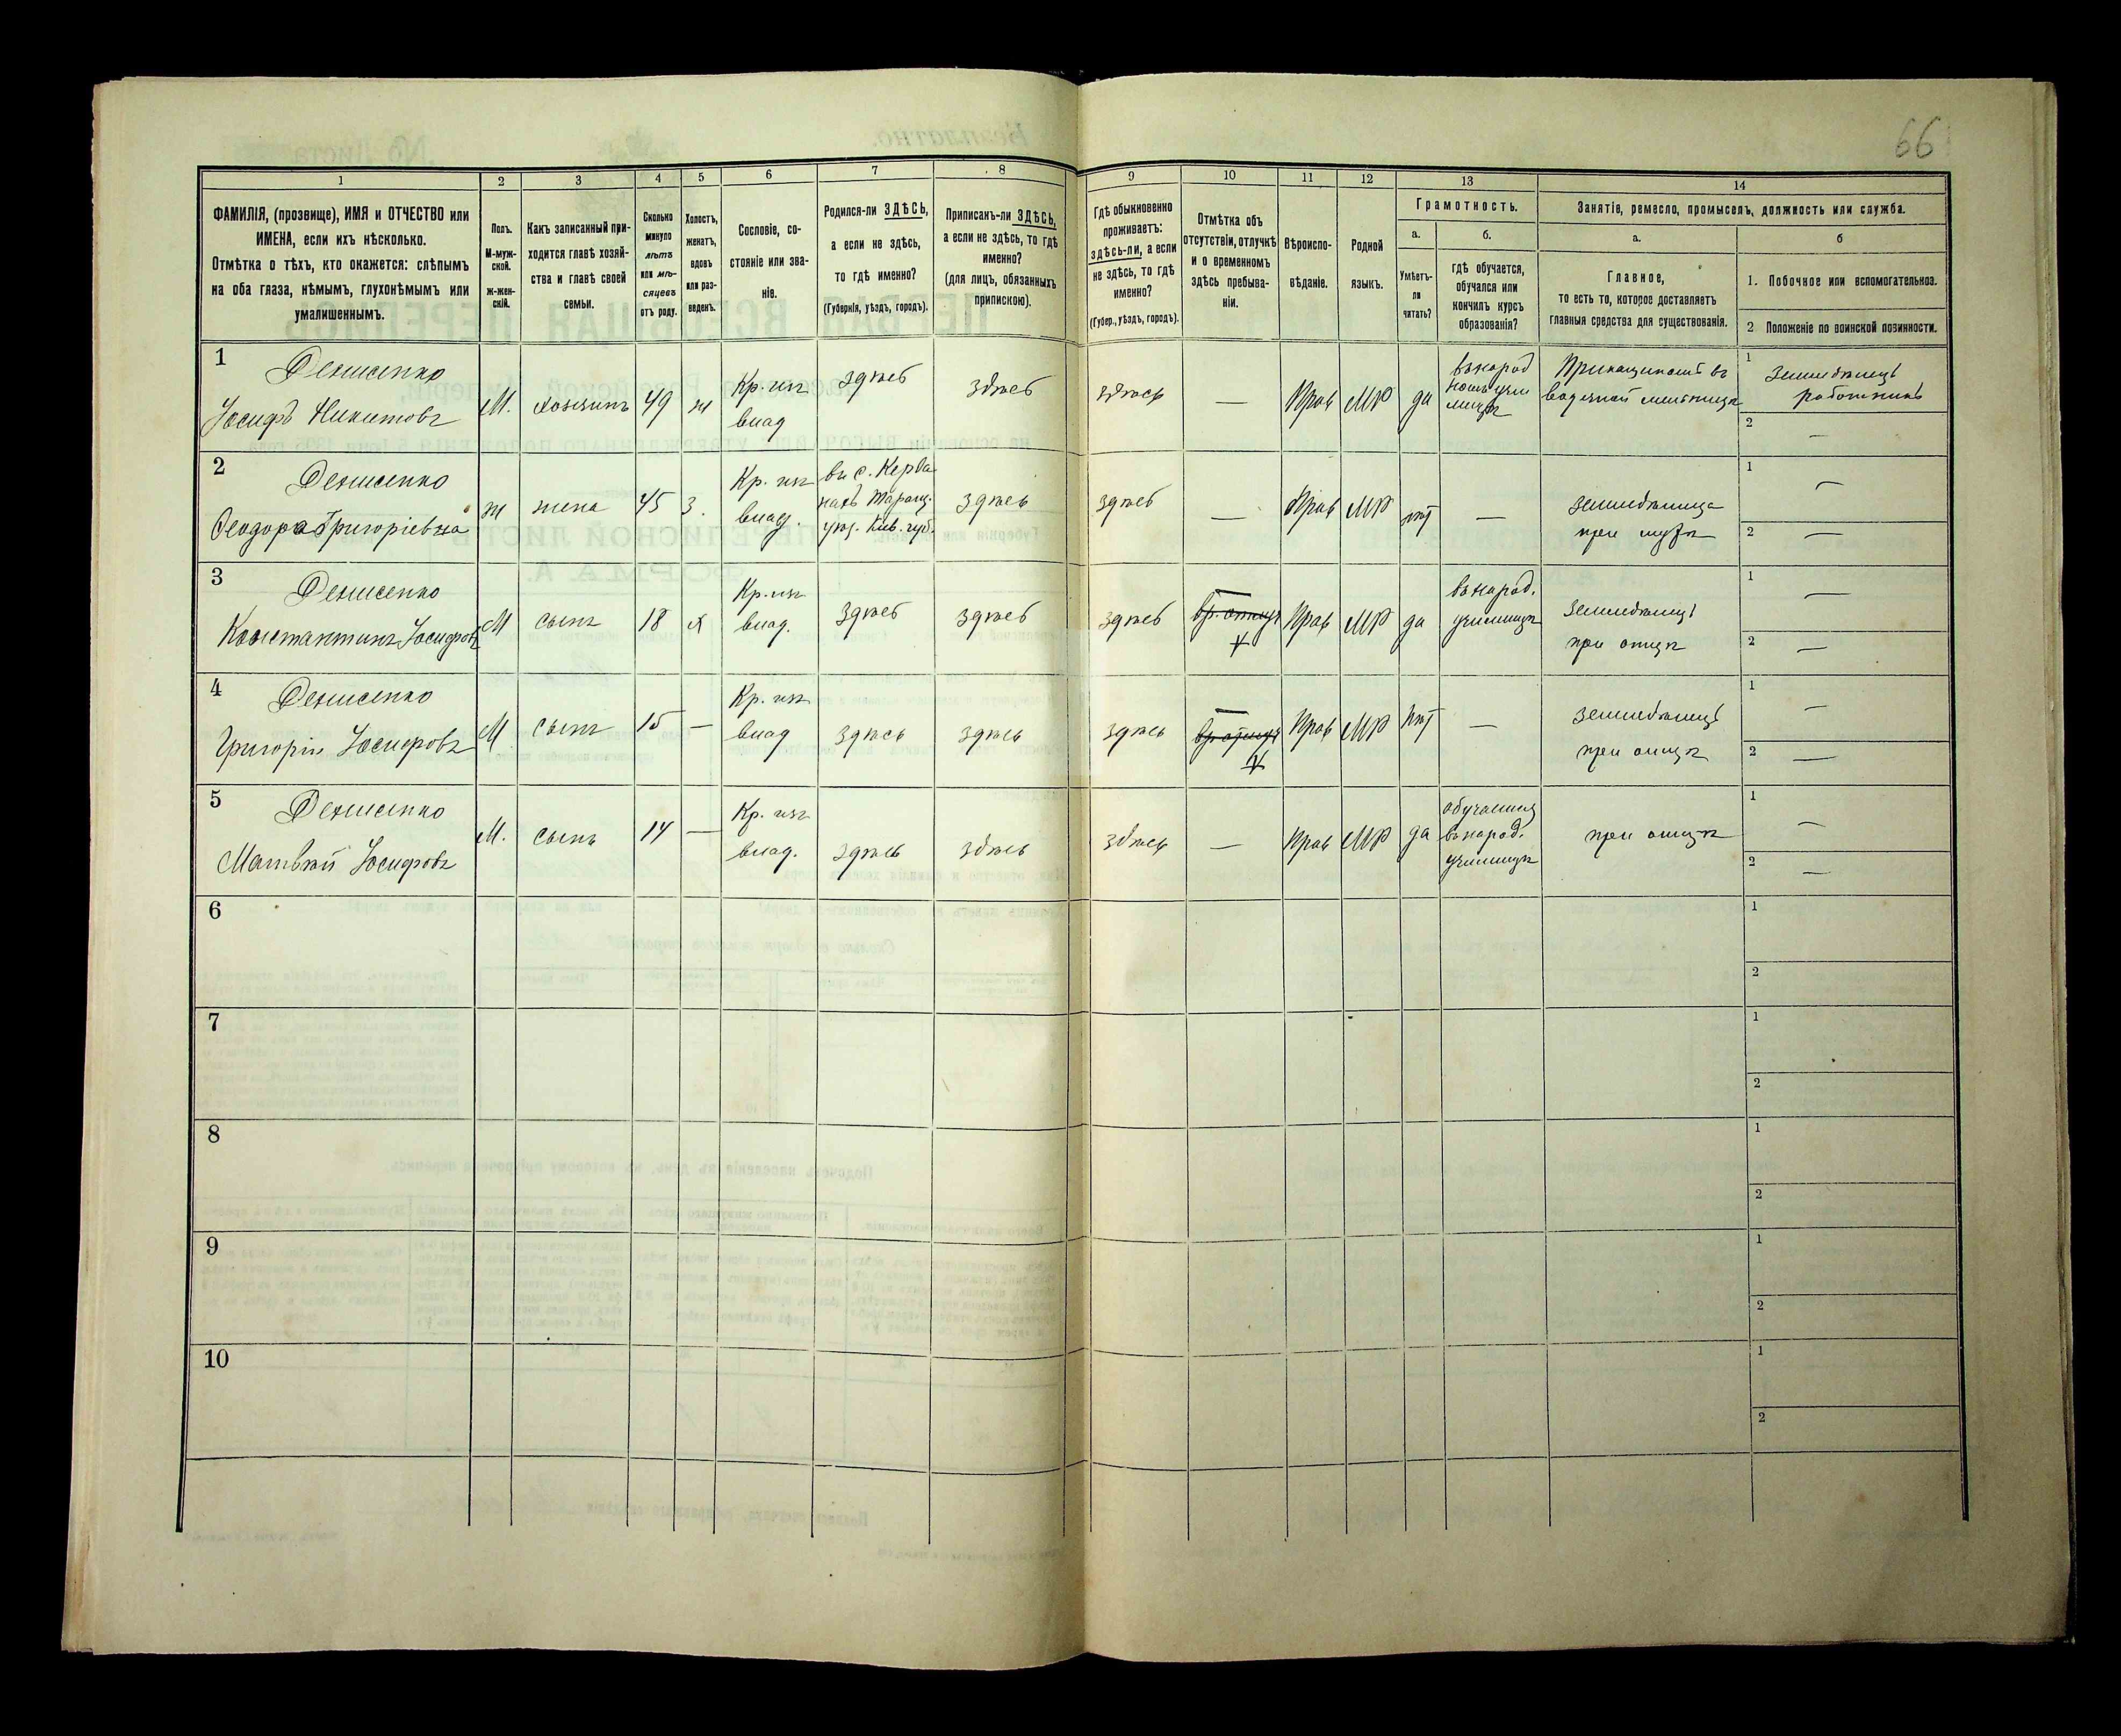 66
1
2
3
4
5
6
7
8
9
10
11
12
13
14
ФАМИЛІЯ, (прозвище), ИМЯ и ОТЧЕСТВО или
ИМЕНА, если ихъ нѣсколько.
Отмѣтка о тѣхъ, кто окажется: слѣпымъ
на оба глаза, нѣмымъ, глухонѣмымъ или
умалишеннымъ.
Полъ.
М-муж-
ской.
Ж-жен-
скій.
Какъ записанный при-
ходится главѣ хозяй-
ства и главѣ своей
семьи.
Сколько
минуло
лѣтъ
или мѣ-
сяцевъ
отъ роду.
Холостъ,
женатъ,
вдовъ
или раз-
веденъ.
Сословіе, со-
стояніе или зва-
ніе.
Родился-ли ЗДѢСЬ,
а если не здѣсь,
то гдѣ именно?
(Губернія, уѣздъ, городъ).
Приписанъ-ли ЗДѢСЬ,
а если не здѣсь, то гдѣ
именно?
(для лицъ, обязанныхъ
припискою).
Гдѣ обыкновенно
проживаетъ:
здѣсь-ли, а если
не здѣсь, то гдѣ
именно?
(Губер., уѣздъ, городъ).
Отмѣтка объ
отсутствіи, отлучкѣ
и о временномъ
здѣсь пребыва-
ніи.
Вѣроиспо-
вѣданіе.
Родной
языкъ.
Грамотность.
а.
Умѣетъ-
ли
читать?
б.
гдѣ обучается,
обучался или
кончилъ курсъ
образованія?
Занятіе, ремесло, промыселъ, должность или служба.
а.
Главное,
то есть то, которое доставляетъ
главныя средства для существованія.
б
1. Побочное или вспомогательное.
2 Положеніе по воинской повинности.
1
Денисенко
Іосифъ Никитовъ
М.
хозяинъ
49
ж
Кр. изъ
влад
здѣсь
здѣсь
здѣсь
—
Прав
МР
да
въ народ
номъ учи
лищѣ
Прикащикомъ въ
водяной мельницѣ
1
Земледѣлецъ
работникъ
2 —
2
Денисенко
Ѳеодора Григоріевна
ж
жена
45
з.
Кр. изъ
влад.
въ с. Керда
нахъ Таращ.
уѣз. Кіев. губ.
здѣсь
здѣсь
—
Прав
МР
нѣт
—
земледѣлица
при мужѣ
1 —
2 —
3
Денисенко
Константинъ Іосифовъ
М
сынъ
18
х
Кр. изъ
влад.
здѣсь
здѣсь
здѣсь
—
Прав
МР
да
въ народ.
училищѣ
земледѣлецъ
при отцѣ
1 —
2 —
4
Денисенко
Григорій Іосифовъ
М
сынъ
15
—
Кр. изъ
влад
здѣсь
здѣсь
здѣсь
—
Прав
МР
нѣт
—
земледѣлецъ
при отцѣ
1 —
2 —
5
Денисенко
Матвѣй Іосифовъ
М.
сынъ
14
—
Кр. изъ
влад.
здѣсь
здѣсь
здѣсь
—
Прав
МР
да
обучался
въ народ.
училищѣ
при отцѣ
1 —
2 —
6
1
2
7
1
2
8
1
2
9
1
2
10
1
2